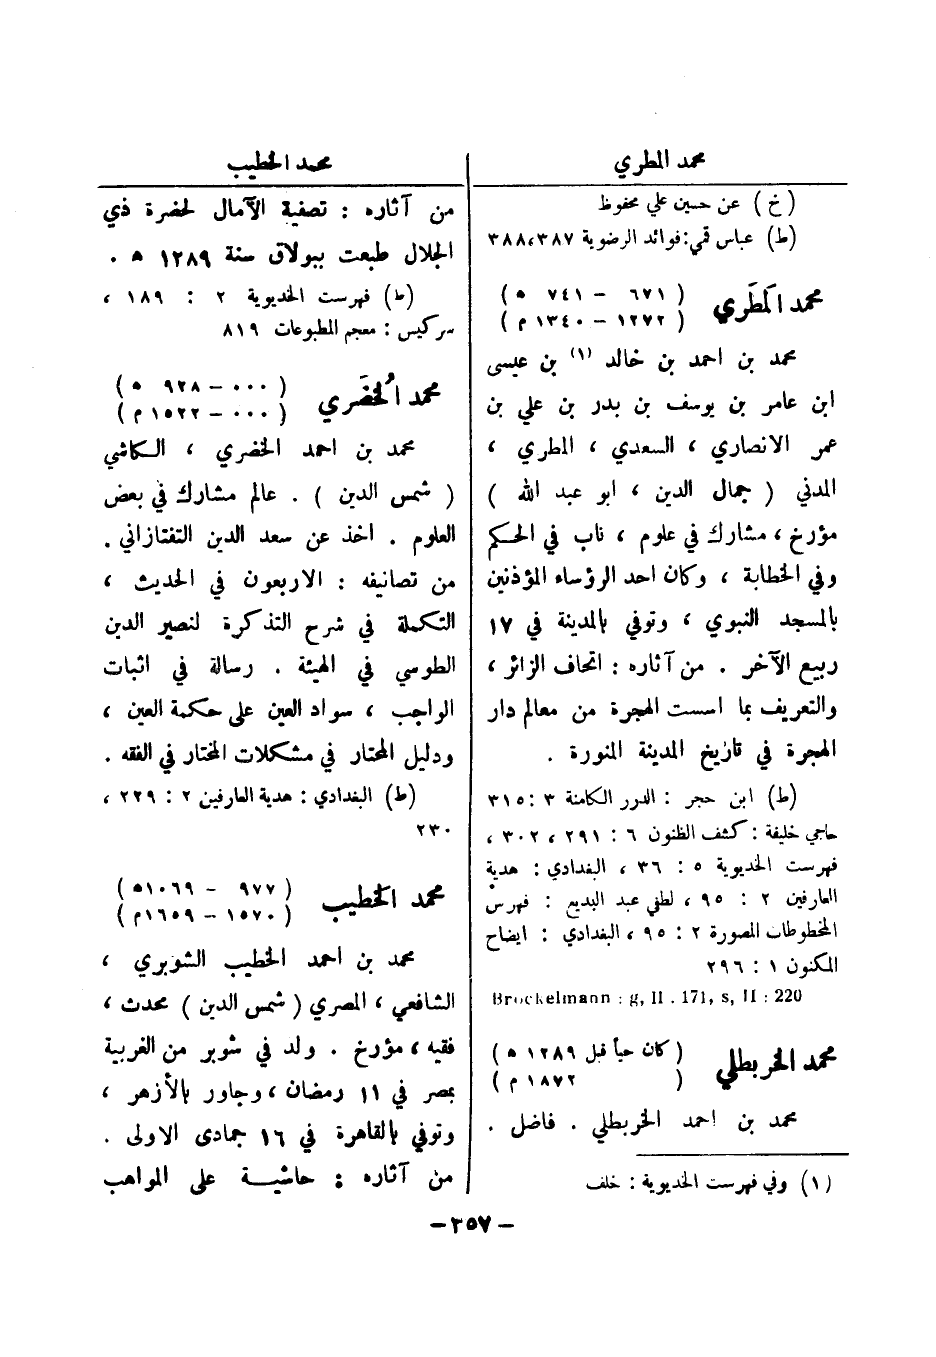 محمد المطري
(خ) عن حسين علي محفوظ
(ط) عباس قمي: فوائد الرضوية ٣٨٧، ٣٨٨
محمد المَطَري (٦٧١ – ٧٤١ ه)
(١٢٧٢ – ١٣٤٠ م)
محمد بن احمد بن خالد (١) بن عيسى
ابن عامر بن يوسف بن بدر بن علي بن
عمر الانصاري ، السعدي ، المطري ،
المدني ( جمال الدين ، ابو عبد الله )
مؤرخ ، مشارك في علوم ، ناب في الحكم
وفي الخطابة ، وكان احد الرؤساء المؤذنين
بالمسجد النبوي ، وتوفي بالمدينة في ١٧
ربيع الآخر . من آثاره : اتحاف الزائر ،
والتعريف بما اسست الهجرة من معالم دار
الهجرة في تاريخ المدينة المنورة .
(ط) ابن حجر : الدرر الكامنة ٣ : ٣١٥
حاجي خليفة : كشف الظنون ٦ : ٢٩١ ، ٣٠٢ ،
فهرست الخديوية ٥ : ٣٦ ، البغدادي : هدية
العارفين ٢ : ٩٥ ، لطفي عبد البديع : فهرس
المخطوطات المصورة ٢ : ٩٥ ، البغدادي : ايضاح
المكنون ١ : ٢٩٦
Brockelmann : g, II . 171, s, II : 220
محمد الخربطلي (كان حياً قبل ١٢٨٩ ه)
( ١٨٧٢ م)
محمد بن احمد الخربطلي . فاضل .
(١) وفي فهرست الخديوية : خلف
محمد الخطيب
من آثاره : تصفية الآمال لحضرة ذي
الجلال طبعت ببولاق سنة ١٢٨٩ ه .
(ط) فهرست الخديوية ٢ : ١٨٩ ،
سركيس : معجم المطبوعات ٨١٩
محمد الخُضَري (٠٠٠ – ٩٢٨ ه)
(٠٠٠ – ١٥٢٢ م)
محمد بن احمد الخضري ، الكاشي
( شمس الدين ) . عالم مشارك في بعض
العلوم . اخذ عن سعد الدين التفتازاني .
من تصانيفه : الاربعون في الحديث ،
التكملة في شرح التذكرة لنصير الدين
الطوسي في الهيئة . رسالة في اثبات
الواجب ، سواد العين على حكمة العين ،
ودليل المحتار في مشكلات المختار في الفقه .
(ط) البغدادي : هدية العارفين ٢ : ٢٢٩ ،
٢٣٠
محمد الخطيب (٩٧٧ – ١٠٦٩ ه)
(١٥٧٠ – ١٦٥٩ م)
محمد بن احمد الخطيب الشوبري ،
الشافعي ، المصري ( شمس الدين ) محدث ،
فقيه ، مؤرخ . ولد في شوبر من الغربية
بمصر في ١١ رمضان ، وجاور بالأزهر ،
وتوفي بالقاهرة في ١٦ جمادى الاولى .
من آثاره : حاشية على المواهب
– ٢٥٧ –